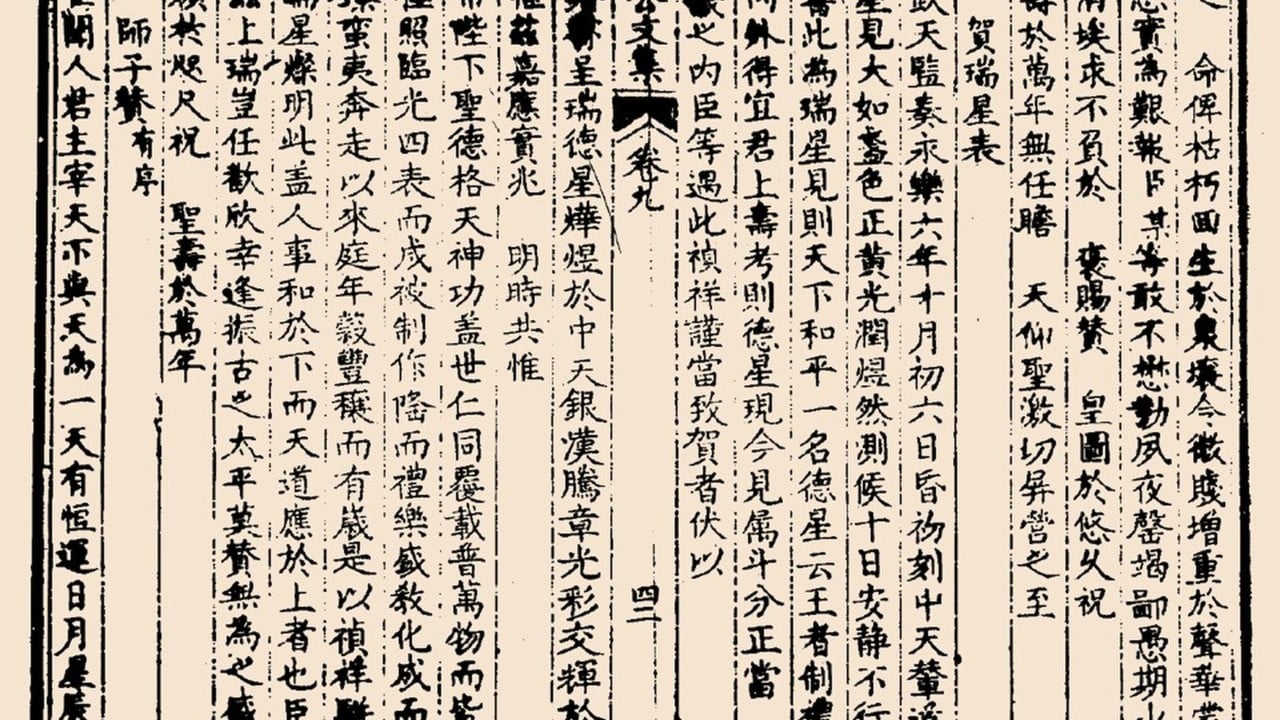 命俾枯朽囬生於泉壤今微賤增重於聲華
實為艱報臣某等敢不懋勤夙夜罄竭鄙愚期
涓埃求不負於 褒賜贊 皇圖於悠久祝
壽於萬年無任瞻 天仰聖激切屏營之至
賀瑞星表
欽天監奏永樂六年十月初六日昏刻中天輦道
星見大如盞色正黄光潤煜然測候十日安静不行
此為瑞星見則天下和平一名德星云王者制禮
外得宜君上壽考則德星現今見属斗分正當
之内臣等遇此禎祥謹當致賀者伏以
公文集 卷九 四二
呈瑞德星燁煜於中天銀漢騰章光彩交輝於
兹嘉應實兆 明時共惟
帝陛下聖德格天神功盖世仁同覆載普萬物而皆
照臨光四表而咸被制作隆而禮樂盛教化成而
蛮夷奔走以來庭年穀豐穰而有嵗是以禎祥
瑞星燦明此盖人事和於下而天道應於上者也臣
上瑞豈任歡欣幸逢振古之太平莫賛無為之盛
咫尺祝 聖壽於萬年
師子贊有序
聞人君主宰天下與天為一天有恒運日月星辰